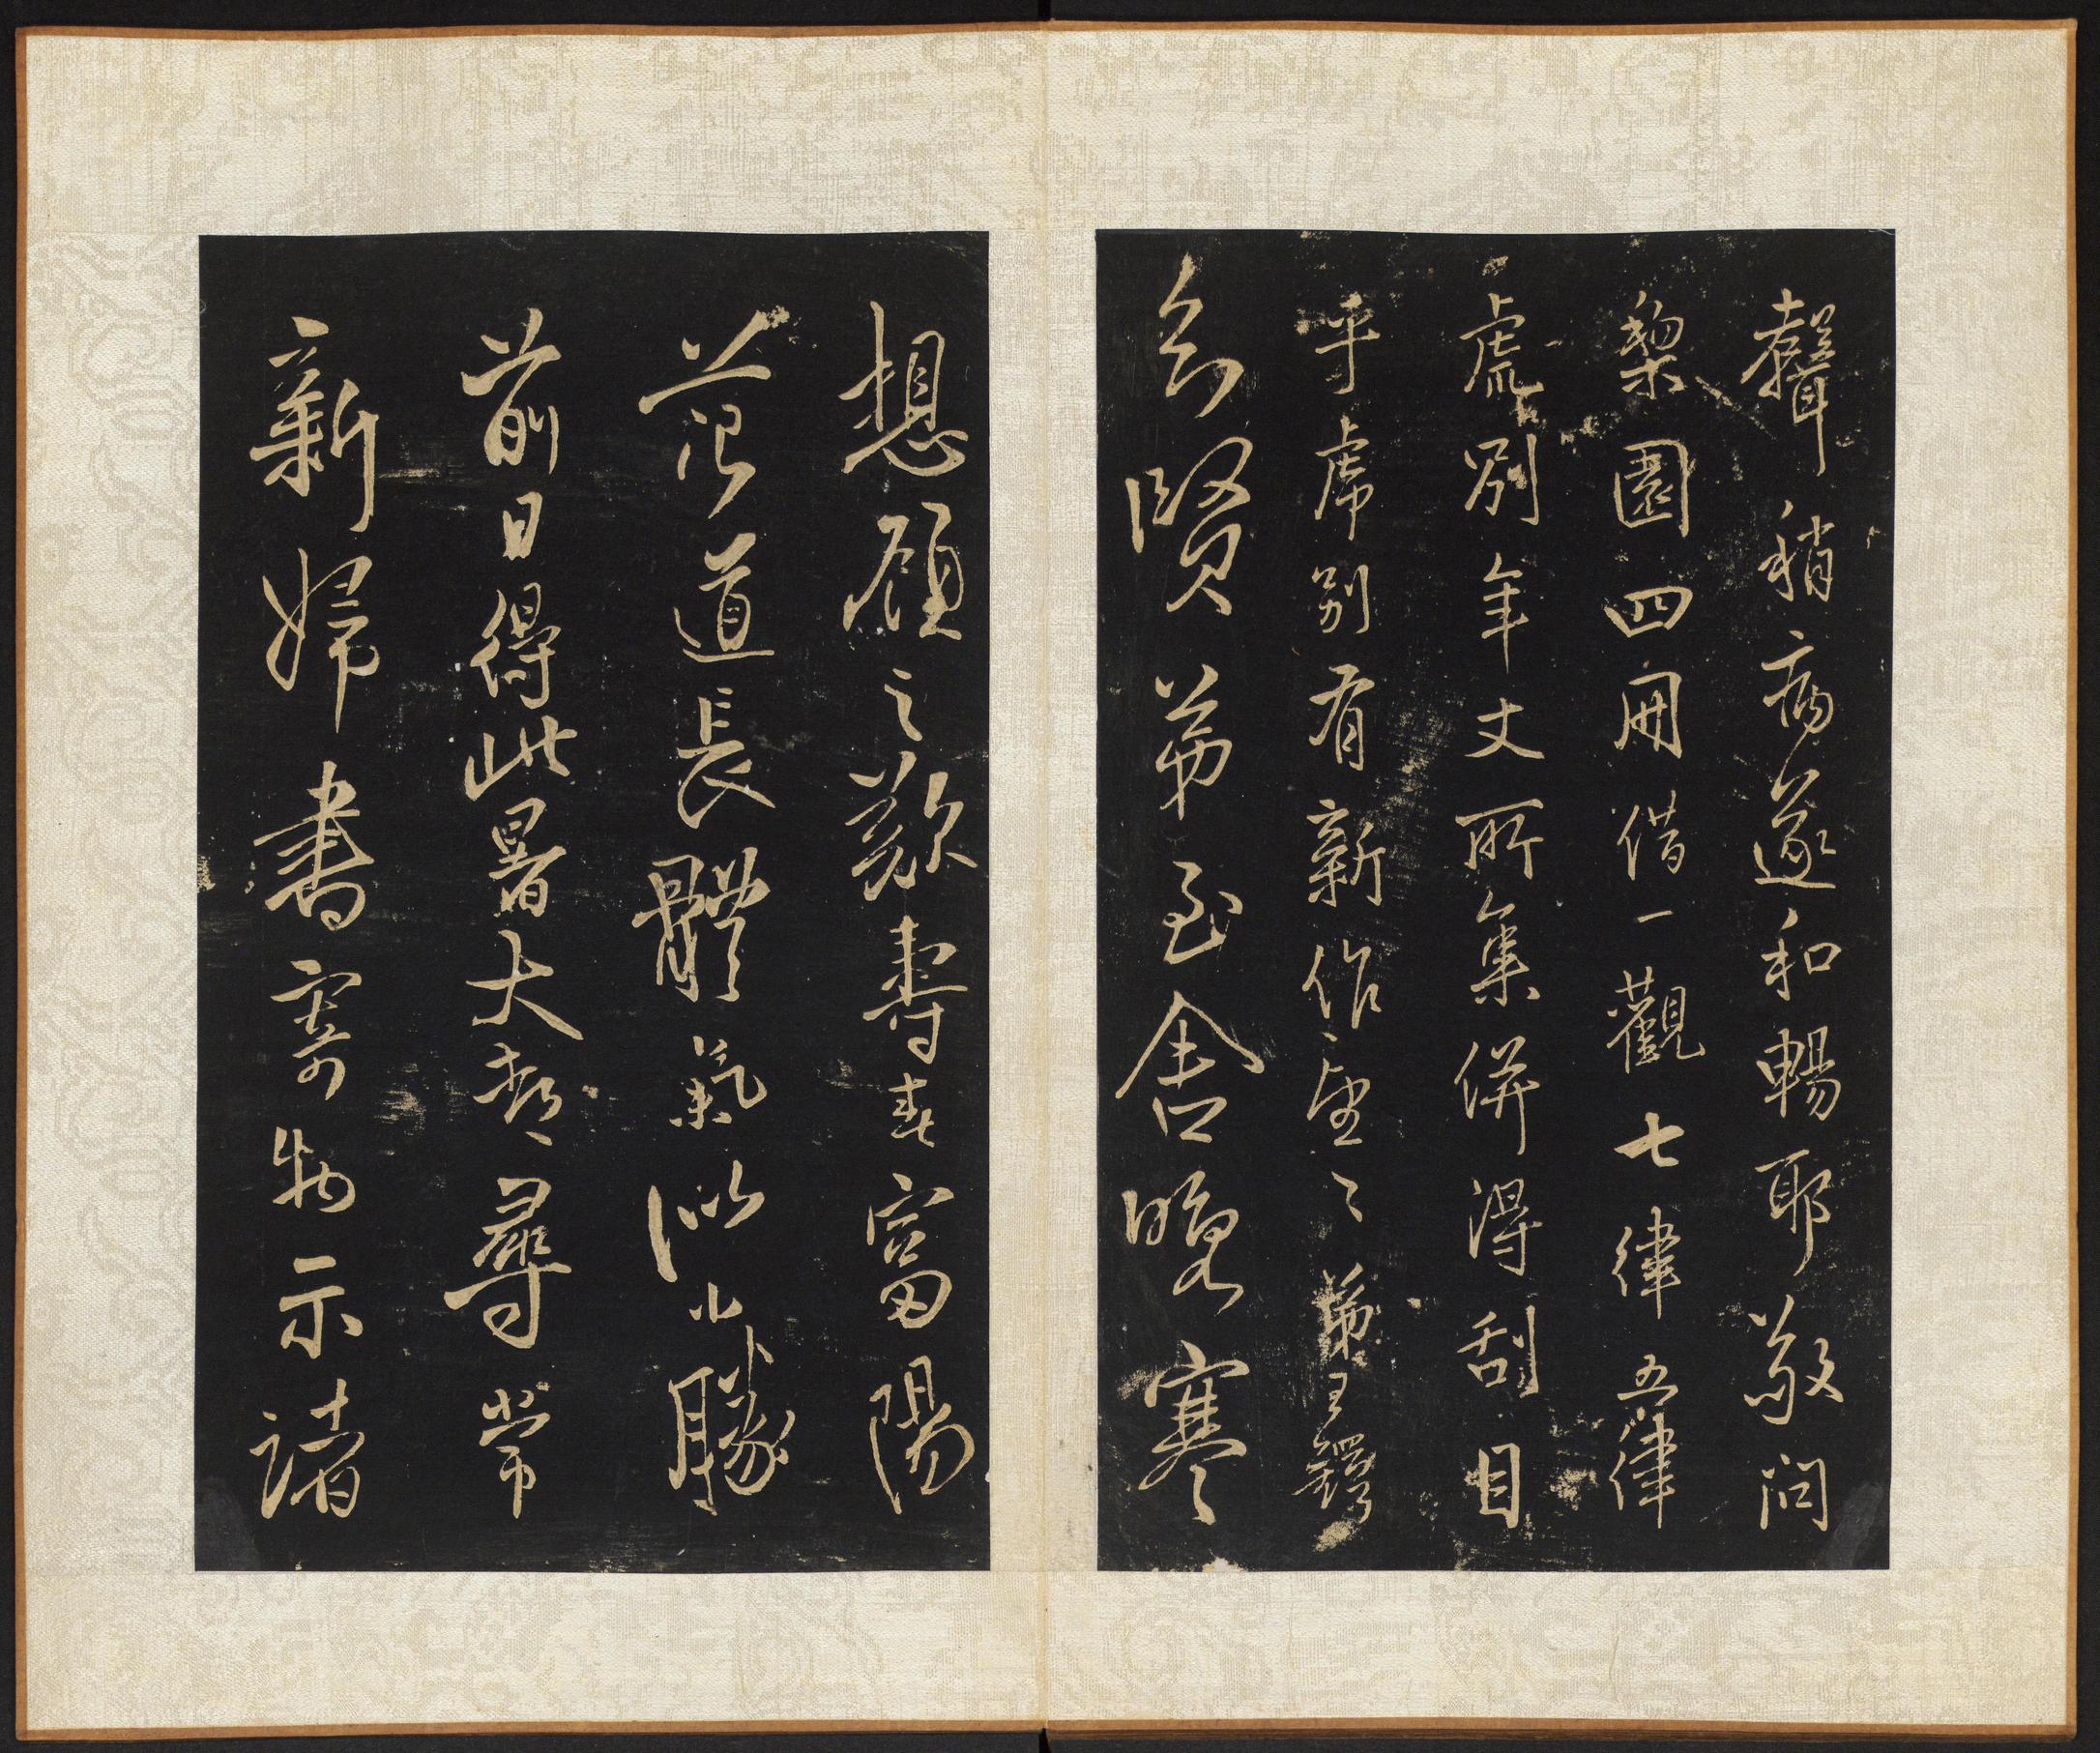 聲稍病遂和暢耶敬問
梨園四冊借一觀七律五律
處別年丈所集併得刮目
乎席別有新作望々弟王鐸
知賢弟至舍晚寒
想顧之歎壽春富陽
范道長體氣似小勝
前日得此暑大都尋常
新婦書寄物示諸